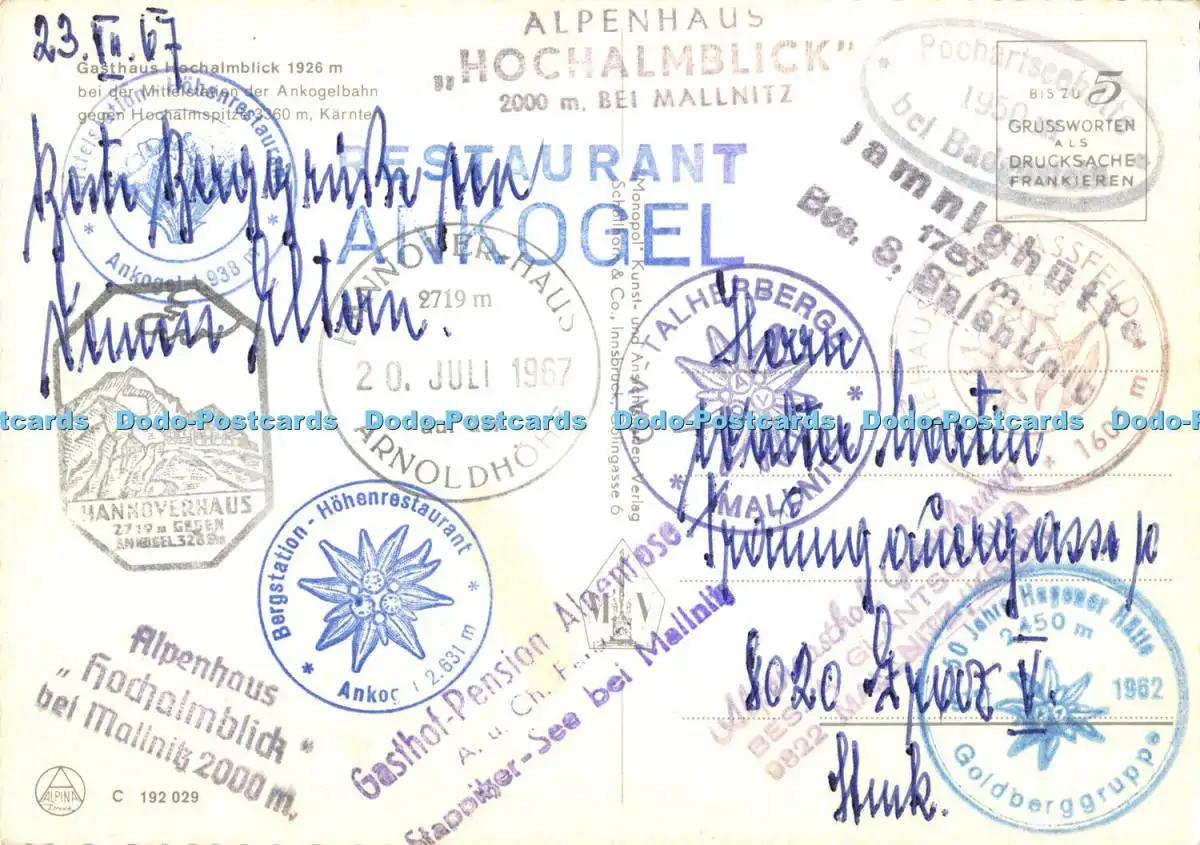 23. VII. 67
Gasthaus Hochalmblick 1926 m
bei der Mittelstation der Ankogelbahn
gegen Hochalmspitze 3360 m, Kärnten
ALPENHAUS
„HOCHALMBLICK"
2000 m. BEI MALLNITZ
1950
bei
BIS ZU 5
GRUSSWORTEN
ALS
DRUCKSACHE
FRANKIEREN
Höhenrestaurant
Ankogel 1938 m
RESTAURANT
ANKOGEL
Beste Bergsgrüße von
Deinen Eltern.
Jamnighütte
1757 m
Bes. S.
HANNOVER-HAUS
2719 m
20. JULI 1967
auf der
ARNOLDHÖHE
HANNOVERHAUS
2719 m GEGEN
Monopol Kunst- und Ansichtskarten Verlag
Schöllhorn & Co., Innsbruck,
TALHERBERGE
MALLNITZ
NASSFELD
Herrn
Martin
8020 Graz V.
Stmk.
Bergstation - Höhenrestaurant
Ankogel 2.631 m
Alpenhaus
„Hochalmblick"
bei Mallnitz 2000 m.
Gasthof-Pension Alpenrose
A. u. Ch.
Stappitzer-See bei Mallnitz
M V
9822
50 Jahre Hagener Hütte
2450 m
1962
Goldberggruppe
ALPINA
C 192 029
Dodo-Postcards Dodo-Postcards Dodo-Postcards Dodo-Postcards Dodo-Postcards